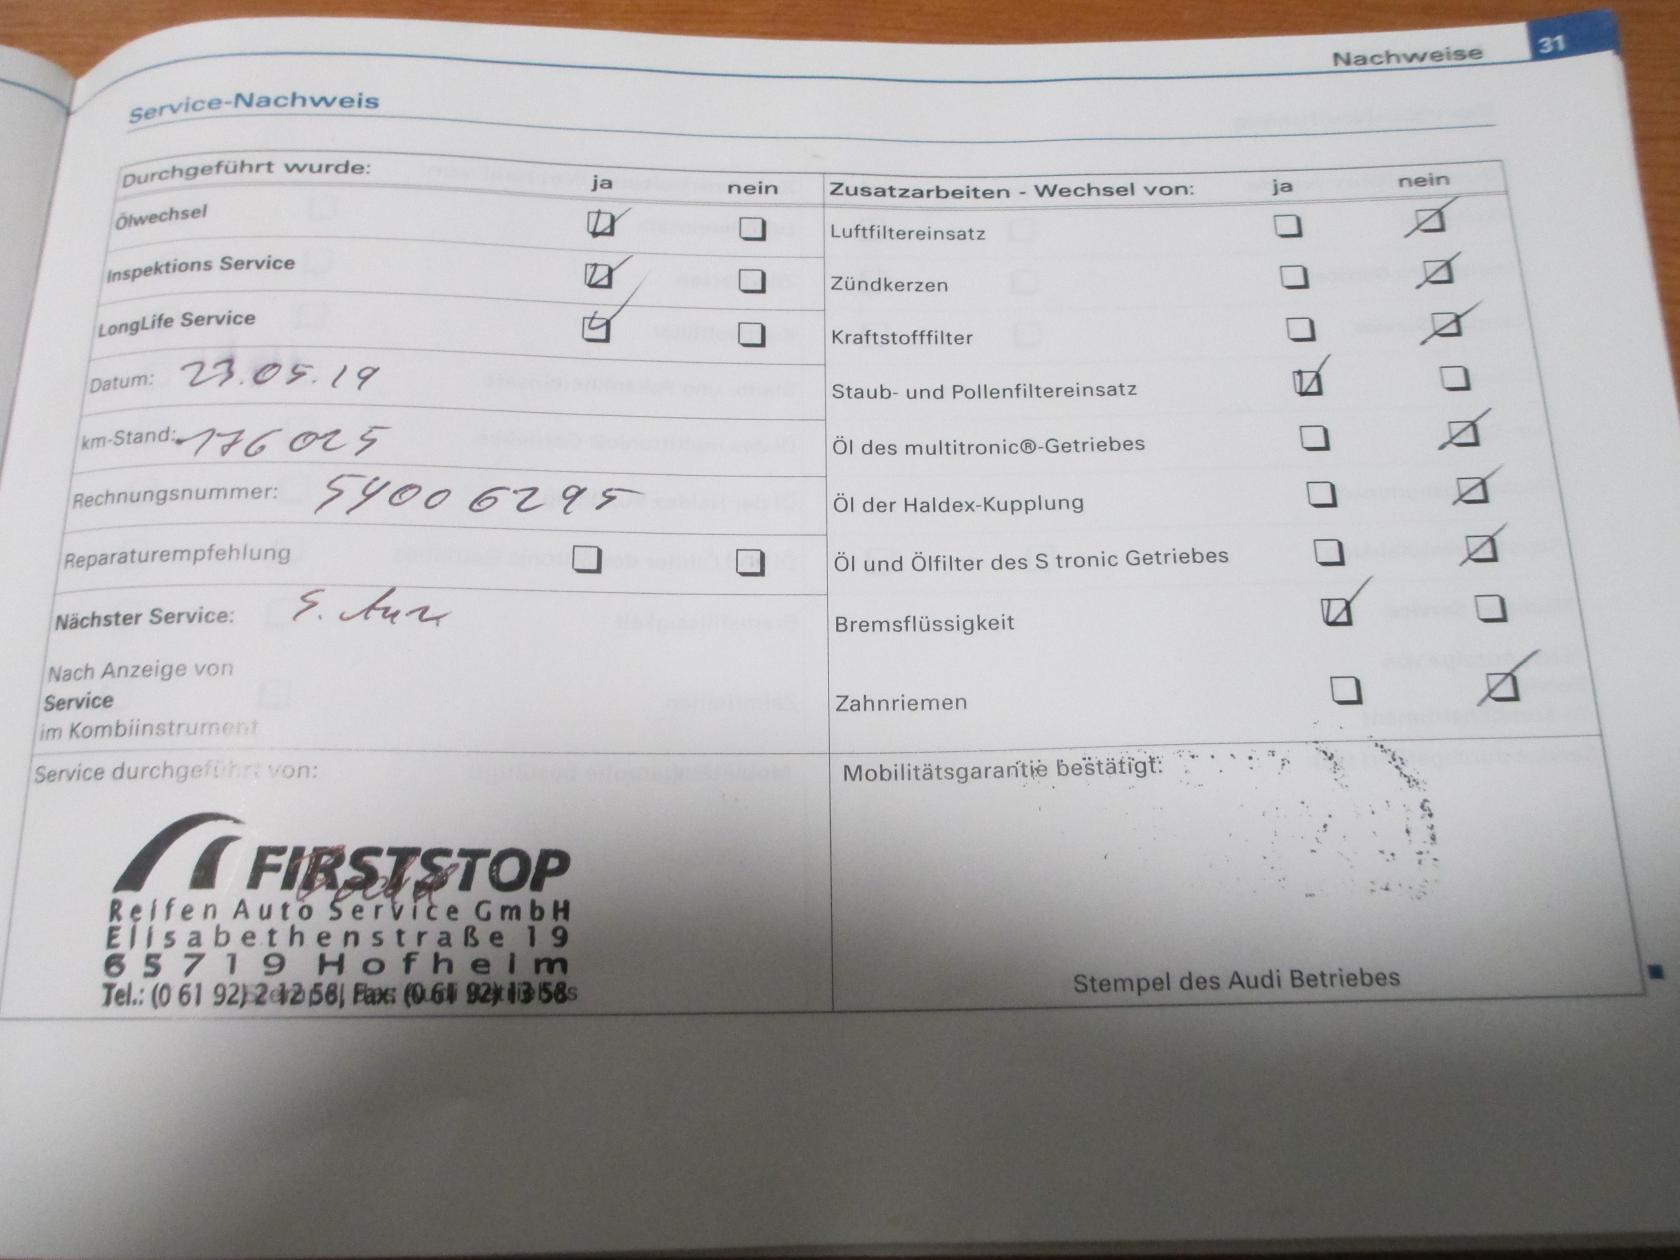 Nachweise 31
Service-Nachweis
Durchgeführt wurde: ja nein
Ölwechsel
Inspektions Service
LongLife Service
Datum: 23.05.19
km-Stand: 176025
Rechnungsnummer: 54006295
Reparaturempfehlung
Nächster Service: S.
Nach Anzeige von
Service
im Kombiinstrument
Service durchgeführt von:
FIRSTSTOP
Reifen Auto Service GmbH
Elisabethenstraße 19
65719 Hofheim
Tel.: (0 61 92) 2 12 58, Fax: (0 61 92) 13 58
Zusatzarbeiten - Wechsel von: ja nein
Luftfiltereinsatz
Zündkerzen
Kraftstofffilter
Staub- und Pollenfiltereinsatz
Öl des multitronic®-Getriebes
Öl der Haldex-Kupplung
Öl und Ölfilter des S tronic Getriebes
Bremsflüssigkeit
Zahnriemen
Mobilitätsgarantie bestätigt:
Stempel des Audi Betriebes